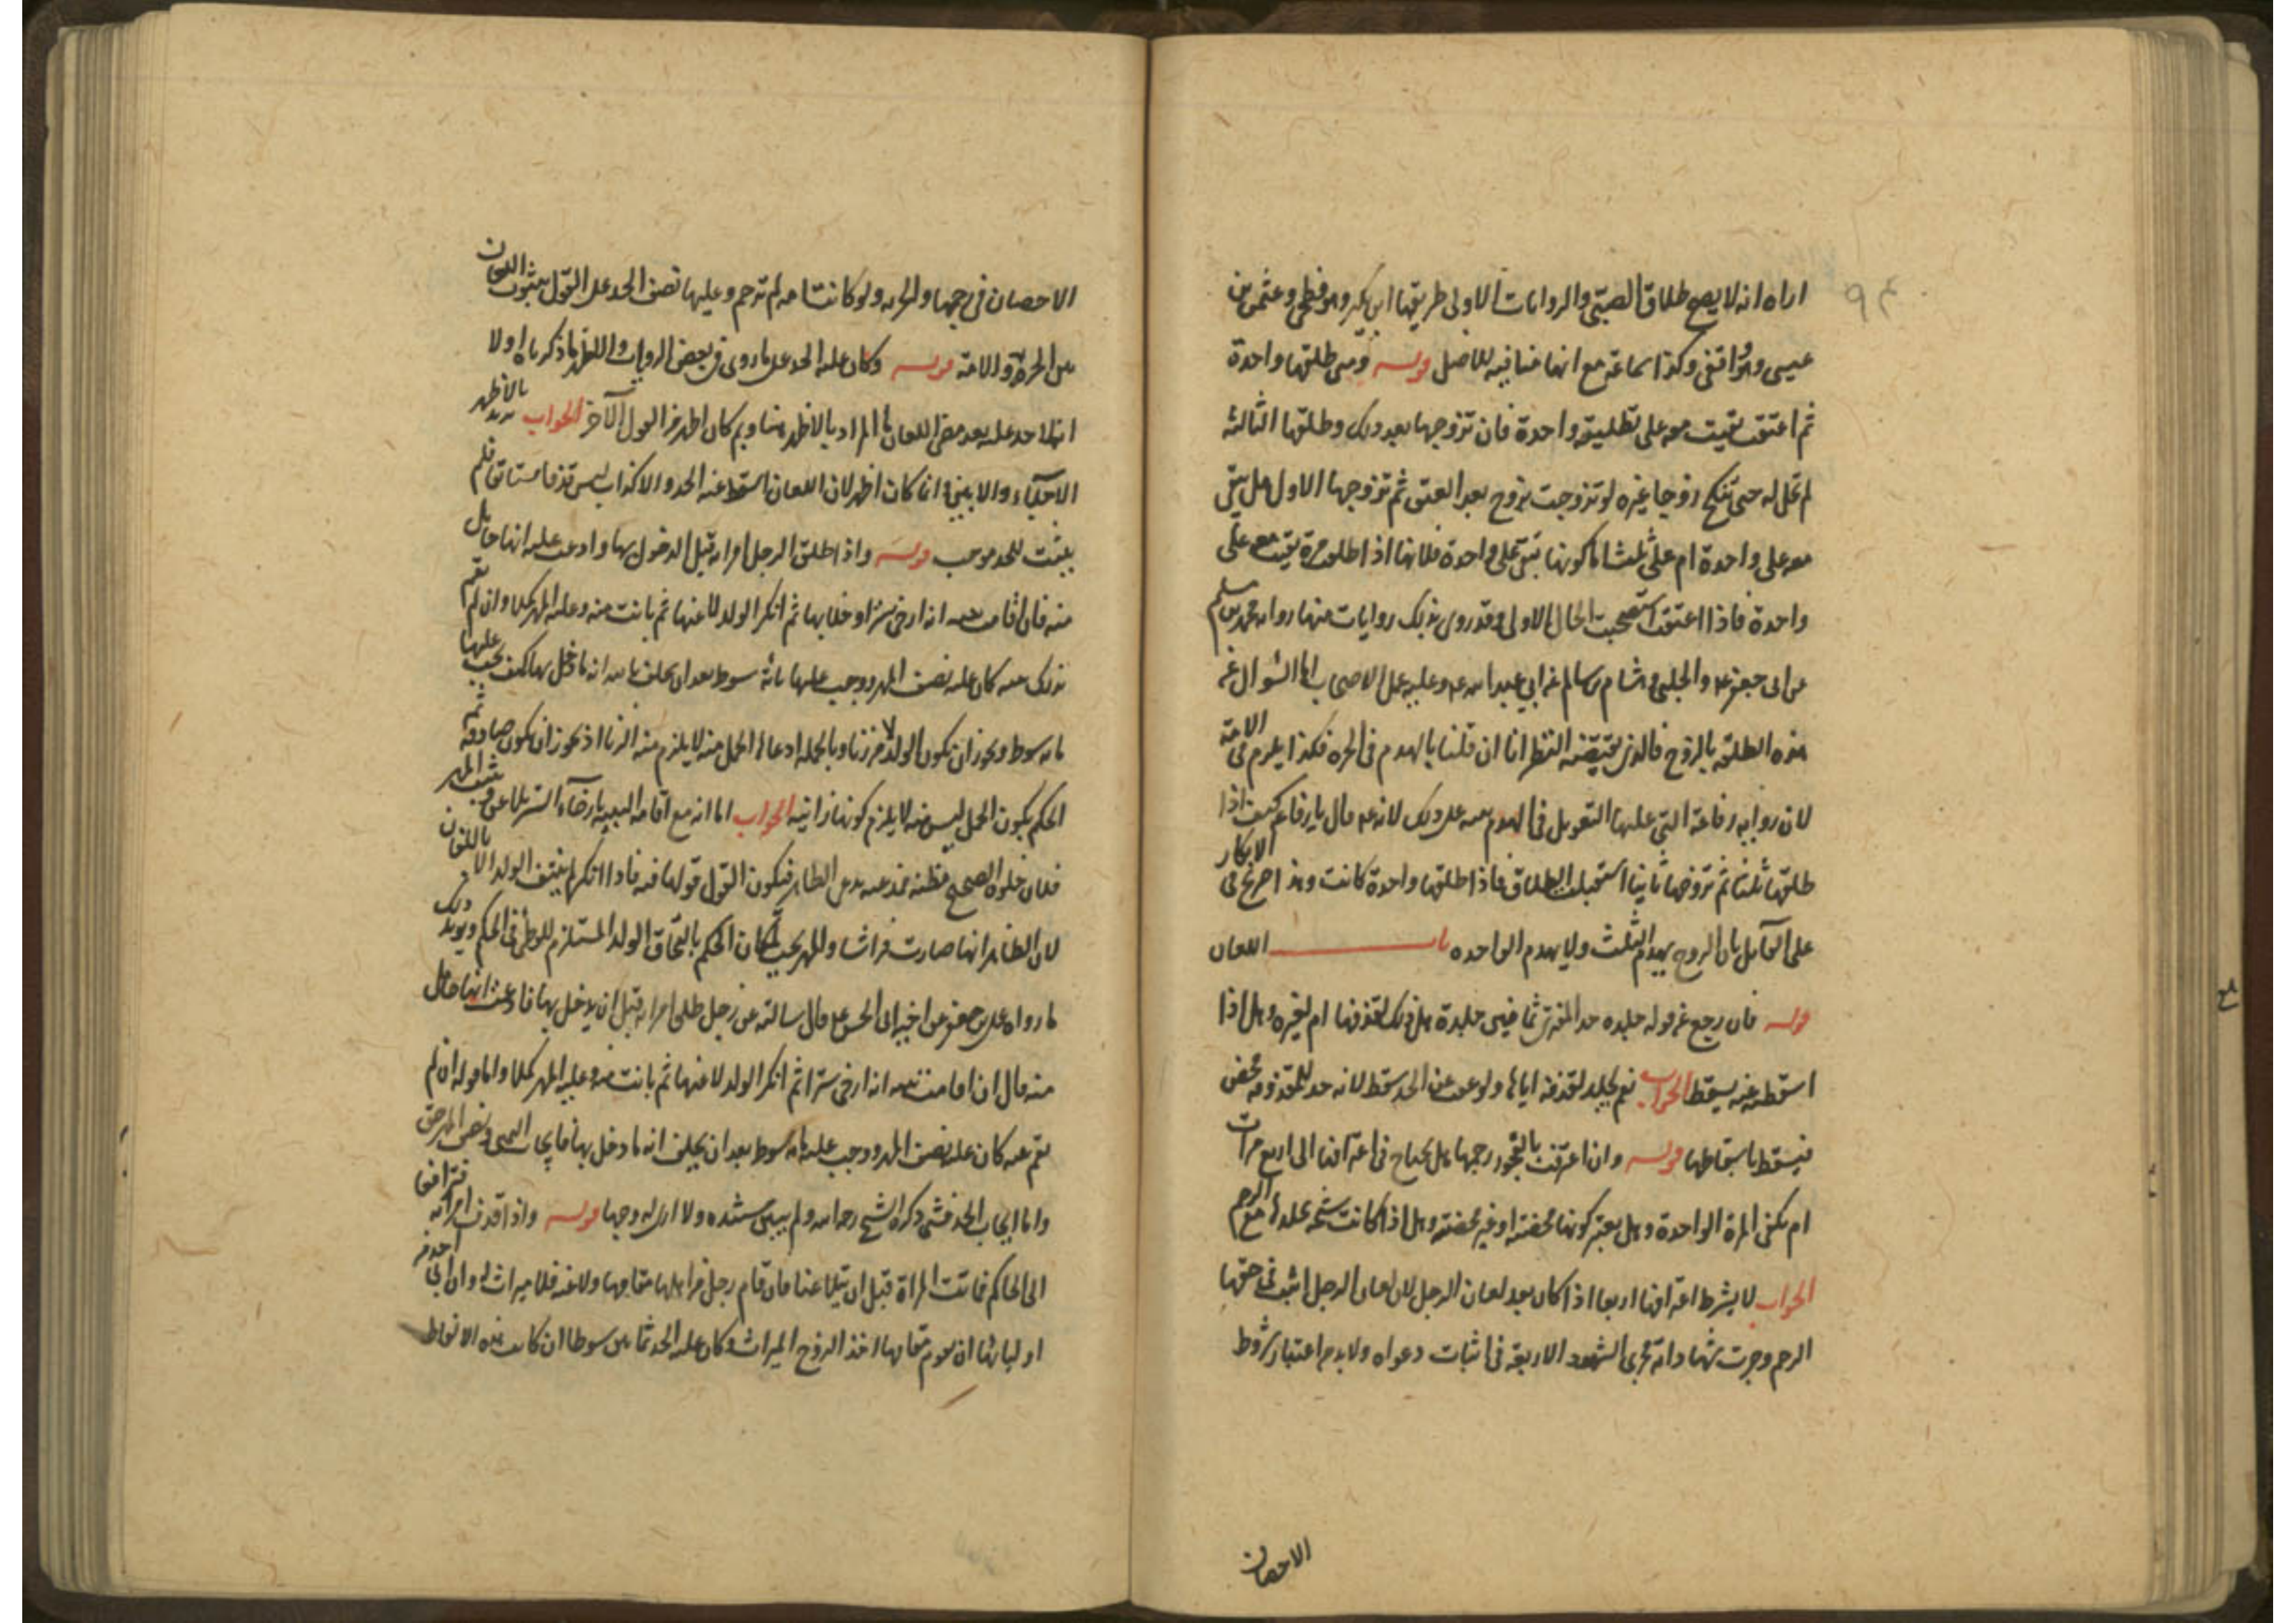 اراه انه لا يصح طلاق الصبي والروايات الاولى طريقها ابن بكير وهو فطحي وعثمن بن
عيسى وهو واقفي وكذا سماعة مع انها منافيه للاصل قوله ومتى طلقها واحدة
ثم اعتقت بقيت معه على تطليقه واحدة فان تزوجها بعد ذلك وطلقها الثالثه
لم تحل له حتى تنكح زوجا غيره لو تزوجت بزوج بعد العتق ثم تزوجها الاول هل يبقى
معه على واحدة ام على ثلث اما كونها تبقى على واحدة فلانها اذا طلقت مرة بقيت معه على
واحدة فاذا اعتقت استصحبت الحال الاولى وقد روى بذلك روايات منها رواه محمد بن مسلم
عن ابى جعفر ع والحلبى وهشام بن سالم عن ابي عبد الله ع وعليه عمل الاصحاب اما السؤال عن
هذه الطلقه بالزوج فالذى يقتضيه النظر انا ان قلنا بالهدم فى الحره فكذا يلزم فى الامة
لان روايه رفاعة التى عليها التعويل فى الهدم منبه على ذلك لانه ع قال يا رفاعه كيف اذا
طلقها ثلثا ثم تزوجها ثانيا استقبلت الطلاق فاذا طلقها واحدة كانت وهذا صريح فى الانكار
على القائل بان الزوج يهدم الثلث ولا يهدم الواحده باب اللعان
قوله فان رجع عن قوله جلده حد المفترى ثمانين جلدة هل ذلك لقذفها ام لغيره وهل اذا
اسقطته عنه يسقط الجواب نعم يجلد لقذفه اياها ولو عفت عن الحد سقط لانه حد للمقذوفه محض
فيسقط باسقاطها قوله وان اعترفت بالفجور رجمها هل يحتاج فى اعترافها الى اربع مرات
ام يكفى المرة الواحدة وهل يعتبر كونها محصنه او غير محصنه وهل اذا كانت شيخه تجلد مع الرجم
الجواب لا يشترط اعترافها اربعا اذا كان بعد لعان الرجل لان لعان الرجل اثبت فى حقها
الرجم وجرت شهادته مجرى الشهود الاربعة فى اثبات دعواه ولا بد من اعتبار شروط
الاحصان
الاحصان فى رجمها والحريه ولو كانت امه لم ترجم وعليها نصف الحد على القول بثبوت اللعان
بين الحرة والامة قوله وكان عليه الحد على ما روى فى بعض الروايات والاظهر ما ذكرناه اولا
انه لا حد عليه بعد مضى اللعان ما المراد بالاظهر هنا وبم كان اظهر من القول الآخر الجواب يريد بالاظهر
الاجلى والابين وانما كان اظهر لان اللعان اسقط عنه الحد والاكذاب ليس قذفا مستانفا فلم
يثبت للحد موجب قوله واذا طلق الرجل امراته قبل الدخول بها وادعت عليه انها حامل
منه فان اقامت بينه انه ارخى سترا وخلا بها ثم انكر الولد لاعنها ثم بانت منه وعليه المهر كملا وان لم تقم
بذلك بينه كان عليه نصف المهر ووجب عليها مائة سوط بعد ان يحلف بالله انه ما دخل بها كيف يجب عليها
مائه سوط ويجوز ان يكون الولد لا من زنا وبالجمله ادعاء الحمل منه لا يلزم منه الزنا اذ يجوز ان يكون صادقه ثم
الحكم بكون الحمل ليس منه لا يلزم كونها زانيه الجواب اما انه مع اقامه البينه بارخاء الستر يلاعن ويثبت المهر
فلان خلوة الصحيح مظنه الظاهر فيكون القول قولها فيه فاذا انكر لم ينتف الولد الا باللعان
لان الظاهر انها صارت فراشا والمهر يجب لمكان الحكم بالتحاق الولد المستلزم للوطى فى الحكم ويؤيد ذلك
ما رواه على بن جعفر عن اخيه ابى الحسن ع قال سالته عن رجل طلق امراته قبل ان يدخل بها فادعت انها حامل
منه قال ان اقامت بينه انه ارخى سترا ثم انكر الولد لاعنها ثم بانت منه وعليه المهر كملا واما قوله ان لم
تقم بينه كان عليه نصف المهر ووجب عليها مائه سوط بعد ان يحلف انه ما دخل بها فايجاب اليمين ونصف المهر حق
واما ايجاب الحد فشئ ذكره الشيخ رحمه الله ولم يبين سنده ولا ارى له وجها قوله واذا قذف امراته فترافعا
الى الحاكم فماتت المراة قبل ان يتلاعنا فان قام رجل من اهلها مقامها ولاعنه فلا ميراث له وان ابى احد من
اوليائها ان يقوم مقامها اخذ الزوج الميراث وكان عليه الحد ثمانين سوطا ان كانت هذه الالفاظ